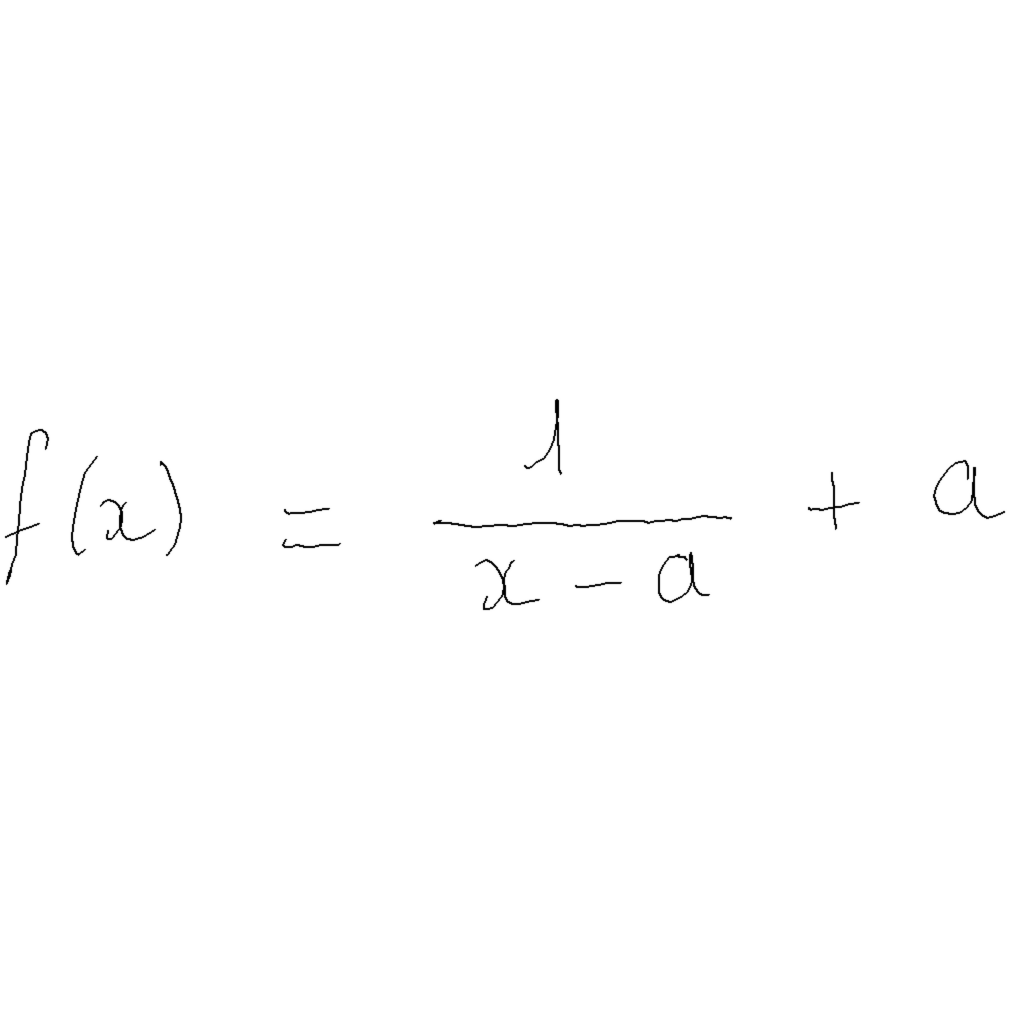 f(x) = \frac{1}{x - a} + a